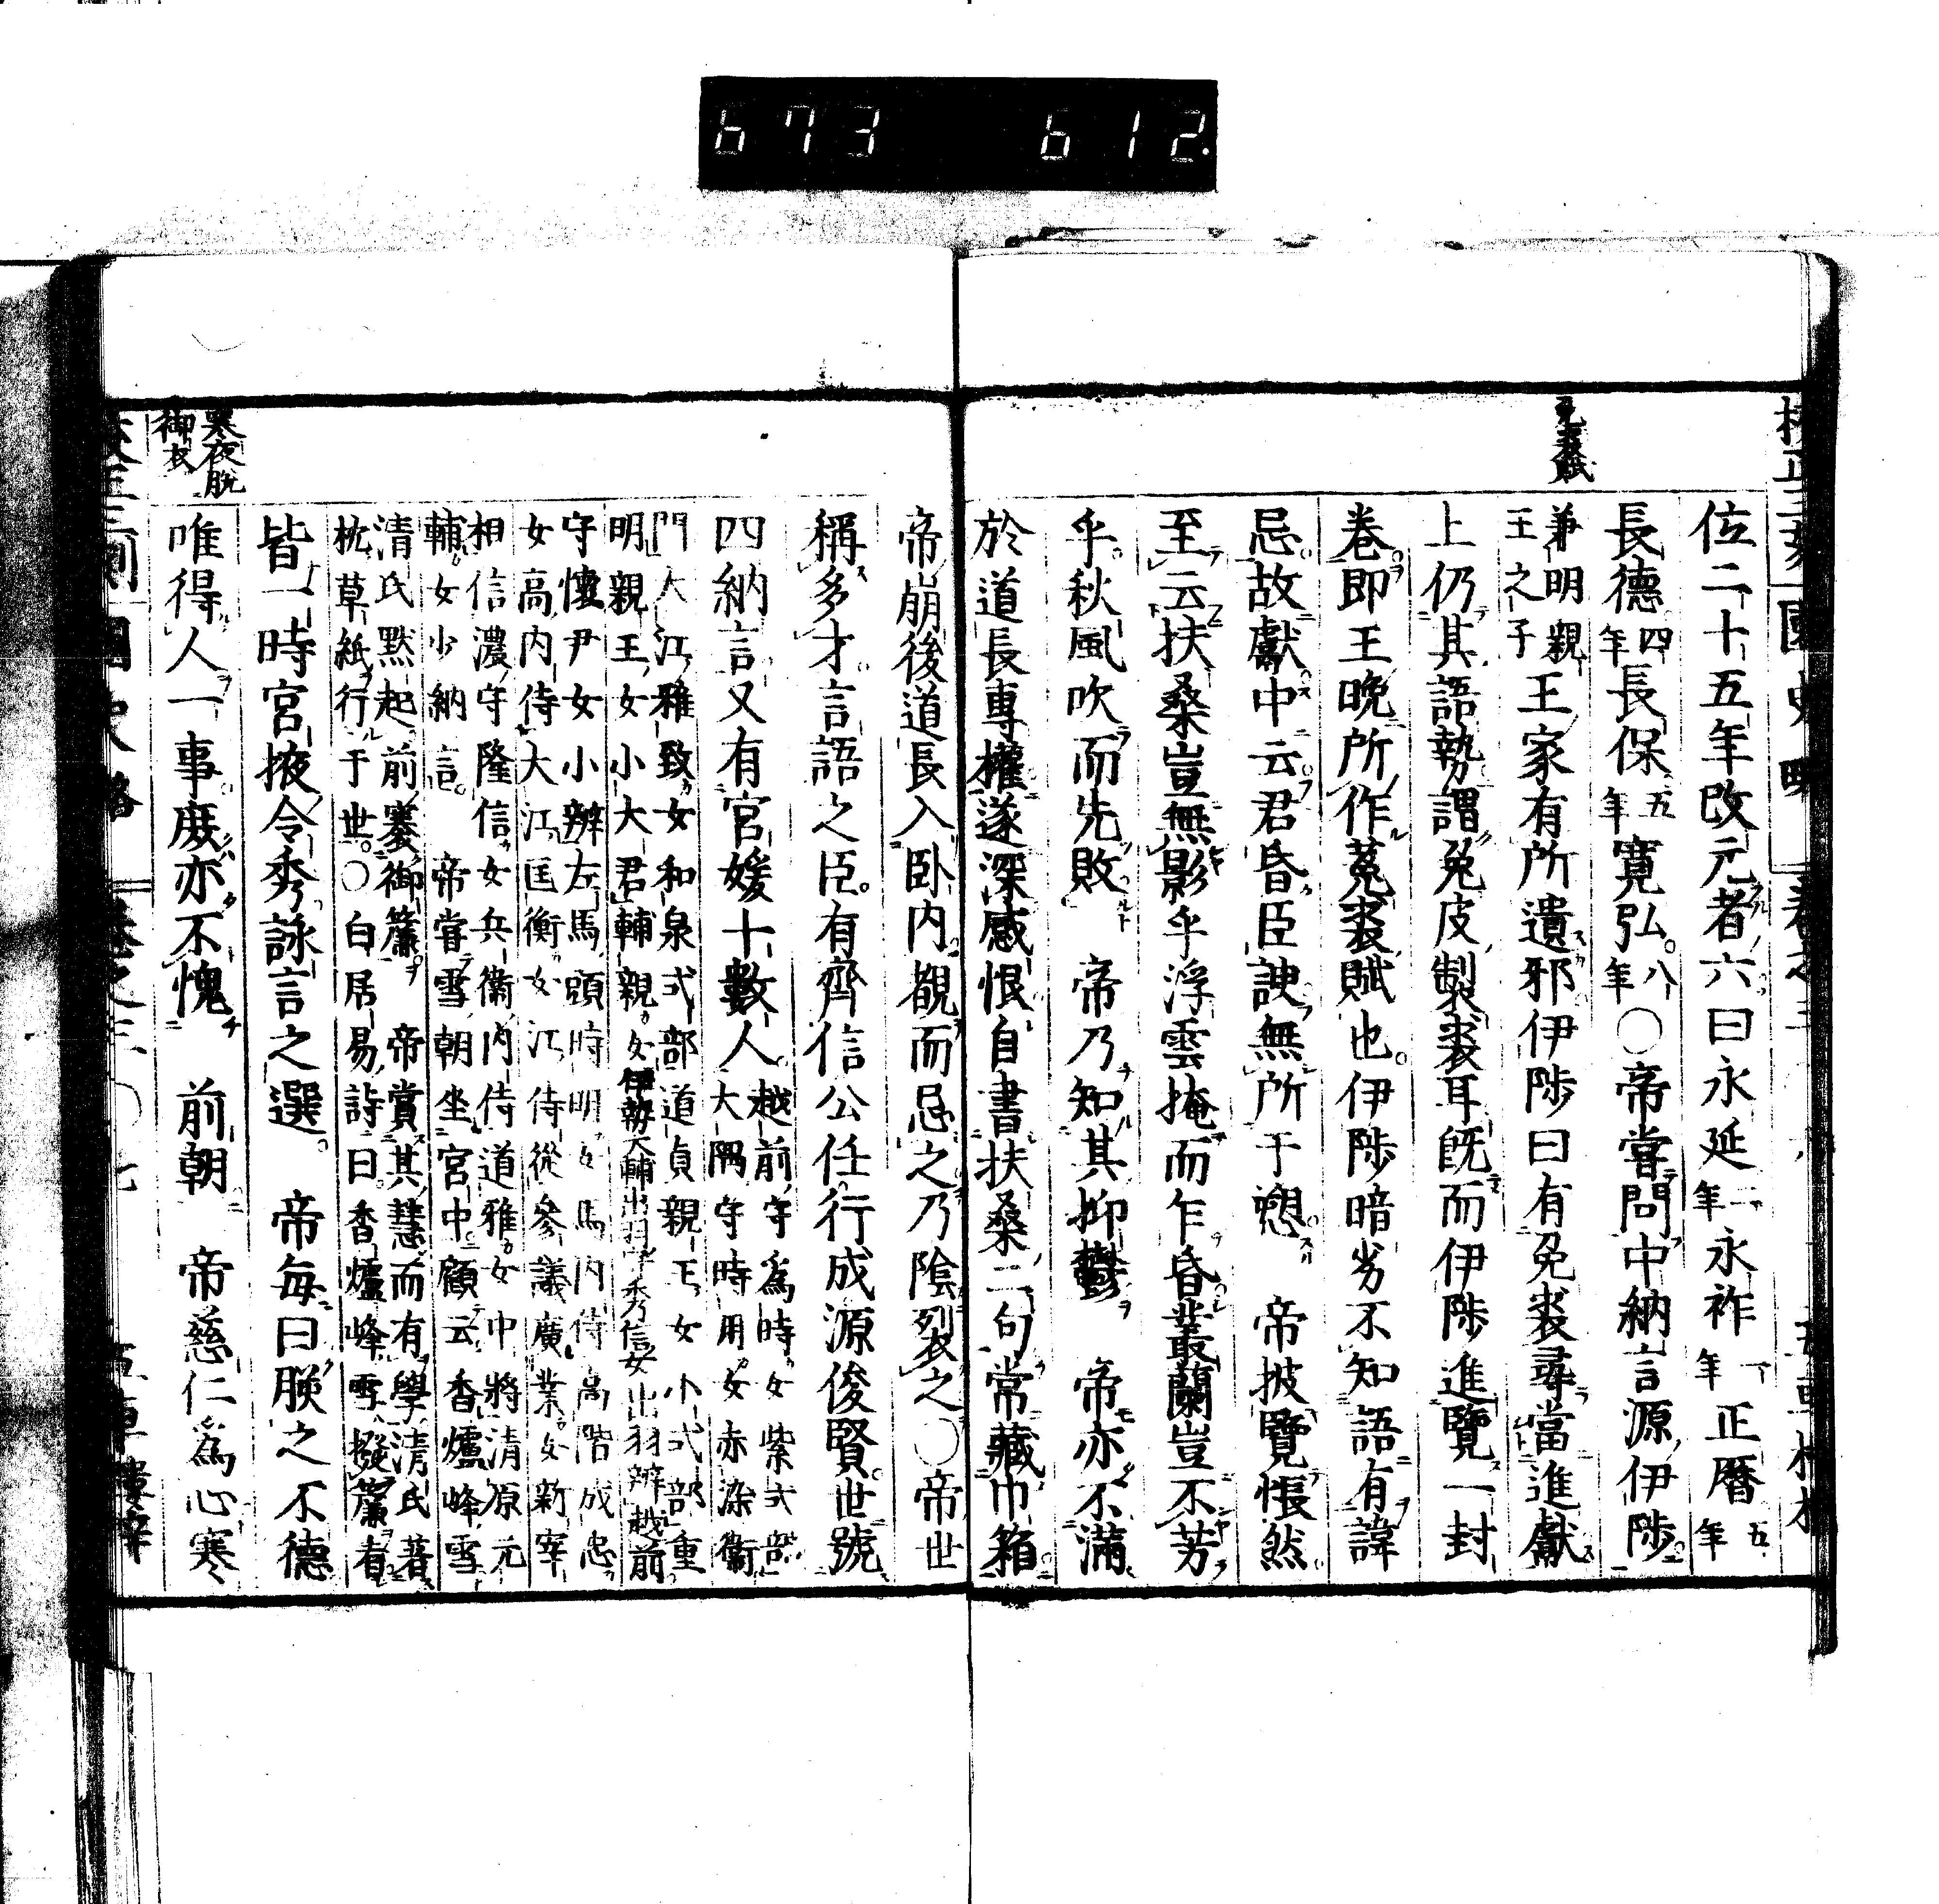 673 612.
位二十五年改元者六曰永延二年永祚一年正曆五年
長德四年長保五年寬弘八年○帝嘗問中納言源伊陟
兼明親王之子王家有所遺邪伊陟曰有兔裘尋當進獻
上仍其語勢謂兔皮製裘耳旣而伊陟進覽一封
卷即王晚所作菟裘賦也伊陟暗劣不知語有諱
忌故獻中云君昏臣諛無所于愬 帝披覽悵然
至云扶桑豈無影乎浮雲掩而乍昏叢蘭豈不芳
乎秋風吹而先敗 帝乃知其抑鬱 帝亦不滿
於道長專權遂深感恨自書扶桑二句常藏巾箱
帝崩後道長入臥內覩而忌之乃陰裂之○帝世
稱多才言語之臣有齊信公任行成源俊賢世號
四納言又有宮媛十數人越前守爲時女紫式部
大隅守時用女赤染衞
門大江雅致女和泉式部道貞親王女小式部重
明親王女小大君輔親女伊勢大輔出羽守秀信女出羽辨越前
守懷尹女小辨左馬頭時明女馬內侍高階成忠
女高內侍大江匡衡女江侍從參議廣業女新宰
相信濃守隆信女兵衞內侍道雅女中將清原元
輔女少納言 帝嘗雪朝坐宮中顧云香爐峰雪
清氏默起前褰御簾 帝賞其慧而有學清氏著
枕草紙行于世○白居易詩曰香爐峰雪撥簾看
皆一時宮掖令秀詠言之選 帝每曰朕之不德
唯得人一事庶亦不愧 前朝 帝慈仁爲心寒
寒夜脫
御衣